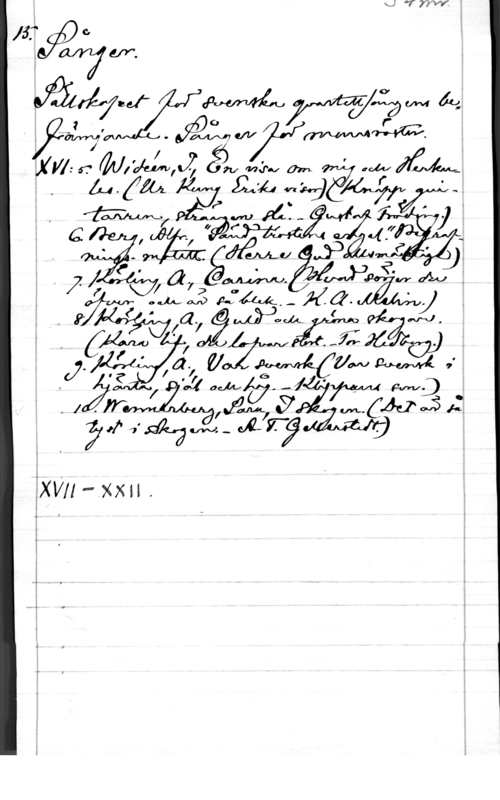 15.
Sånger.
Sällskapet för svenska qvartettsångens be-
främjande. Sånger för mansröster.
XVI: 5. Widéen, I., En visa om mig och Herku-
les. (Ur Kung Eriks visor) (Knäpp gui-
tarren, strängen slå. - Gustaf Fröding.)
6. Berg, Alfr., "Sänd tröstens engel." Begraf-
nings-motett. (Herre Gud allsmäktige)
7. Körling, A., Carina. (Hvad sörjer du
öfver och är så blek. - K. A. Melin.)
8. Körling, A., Guld och gröna skogar.
(Kära lif, du lofvar stort. - Tor Hedberg.)
9. Körling, A., Var svensk (Var svensk i
hjärta, själ och håg. - Klippans son.)
10. Wennerberg, Sara, I skogen. (Det är så
tyst i skogen. - A. T. Gellerstedt.)
XVII - XXII.